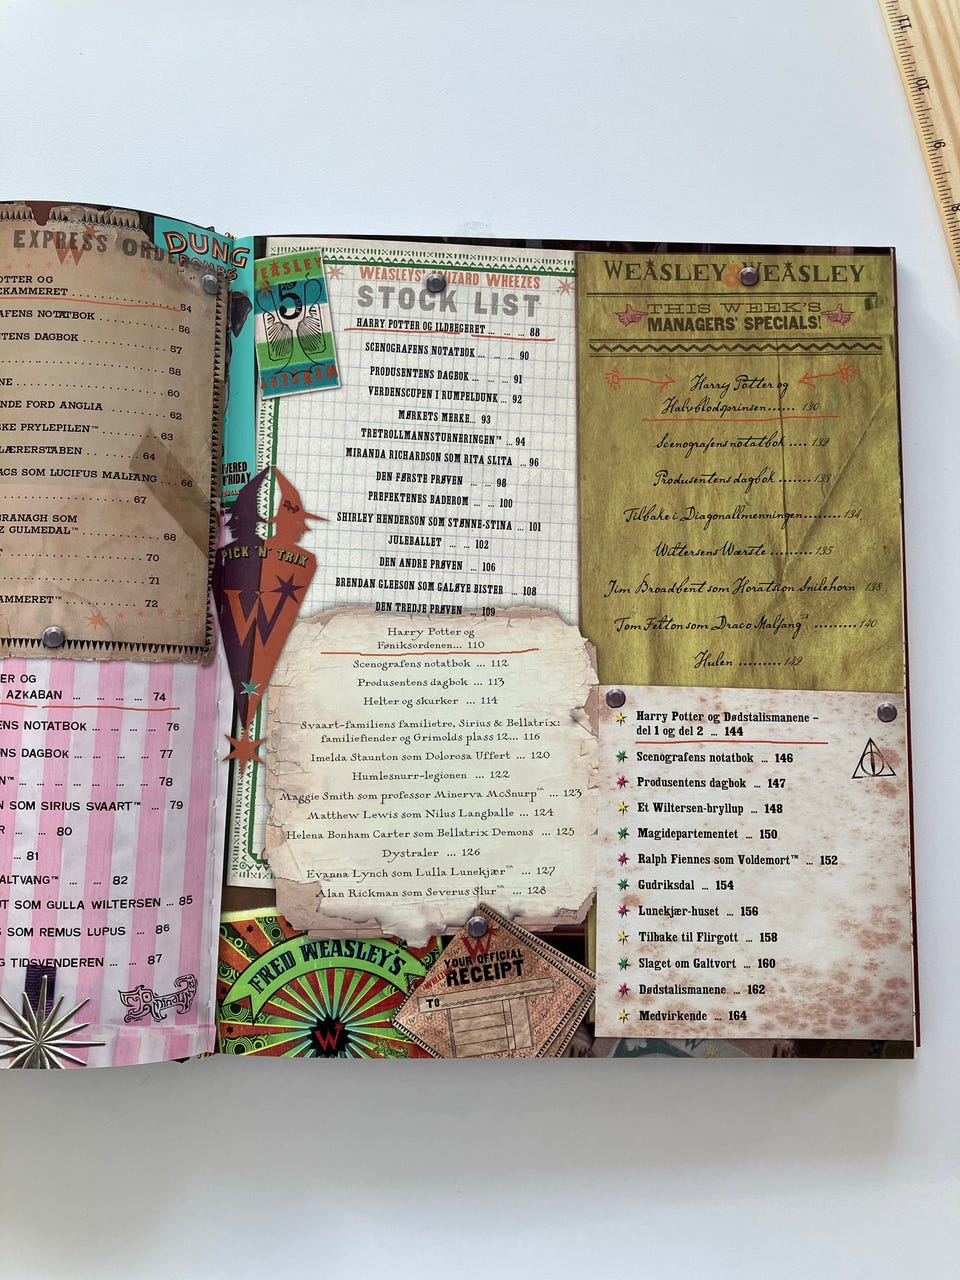 EXPRESS
DUNG
BOMBS
OTTER OG
CKAMMERET 54
AFENS NOTATBOK 56
NTENS DAGBOK 57
58
NE 60
NDE FORD ANGLIA 62
SKE PRYLEPILEN™ 63
LÆRERSTABEN 64
ACS SOM LUCIFUS MALFANG 66
67
BRANAGH SOM
Z GULMEDAL™ 68
70
71
AMMERET™ 72
ER OG
AZKABAN ... ... ... ... 74
ENS NOTATBOK ... ... 76
NS DAGBOK ... ... ... 77
N™ ... ... ... ... 78
N SOM SIRIUS SVAART™ ... 79
R ... ... 80
... 81
ALTVANG™ ... ... 82
UT SOM GULLA WILTERSEN ... 85
S SOM REMUS LUPUS ... 86
G TIDSVENDEREN ... ... 87
WEASLEY
5
WEASLEY
PICK 'N' TRIX
W
WEASLEYS' WIZARD WHEEZES
STOCK LIST
HARRY POTTER OG ILDBEGERET ... ... ... 88
SCENOGRAFENS NOTATBOK ... ... 90
PRODUSENTENS DAGBOK ... ... 91
VERDENSCUPEN I RUMPELDUNK ... 92
MØRKETS MERKE ... 93
TRETROLLMANNSTURNERINGEN™ ... 94
MIRANDA RICHARDSON SOM RITA SLITA ... 96
DEN FØRSTE PRØVEN ... ... 98
PREFEKTENES BADEROM ... ... 100
SHIRLEY HENDERSON SOM STØNNE-STINA ... 101
JULEBALLET ... ... 102
DEN ANDRE PRØVEN ... 106
BRENDAN GLEESON SOM GALØYE BISTER ... 108
DEN TREDJE PRØVEN ... 109
Harry Potter og
Føniksordenen... 110
Scenografens notatbok ... 112
Produsentens dagbok ... 113
Helter og skurker ... 114
Svaart-familiens familietre, Sirius & Bellatrix:
familiefiender og Grimolds plass 12... 116
Imelda Staunton som Dolorosa Uffert ... 120
Humlesnurr-legionen ... 122
Maggie Smith som professor Minerva McSnurp™ ... 123
Matthew Lewis som Nilus Langballe ... 124
Helena Bonham Carter som Bellatrix Demons ... 125
Dystraler ... 126
Evanna Lynch som Lulla Lunekjær™ ... 127
Alan Rickman som Severus Slur™ ... 128
FRED WEASLEY'S
W
YOUR OFFICIAL
RECEIPT
TO
WEASLEY & WEASLEY
THIS WEEK'S
MANAGERS' SPECIALS!
Harry Potter og
Halvblodsprinsen...... 130
Scenografens notatbok .... 132
Produsentens dagbok ...... 133
Tilbake i Diagonallmenningen......... 134
Wiltersens Wærste ......... 135
Jim Broadbent som Horatsion Snilehorn 138
Tom Felton som Draco Malfang™ ......... 140
Hulen ........ 142
Harry Potter og Dødstalismanene –
del 1 og del 2 ... 144
Scenografens notatbok ... 146
Produsentens dagbok ... 147
Et Wiltersen-bryllup ... 148
Magidepartementet ... 150
Ralph Fiennes som Voldemort™ ... 152
Gudriksdal ... 154
Lunekjær-huset ... 156
Tilbake til Flirgott ... 158
Slaget om Galtvort ... 160
Dødstalismanene ... 162
Medvirkende ... 164
11
10
9
8